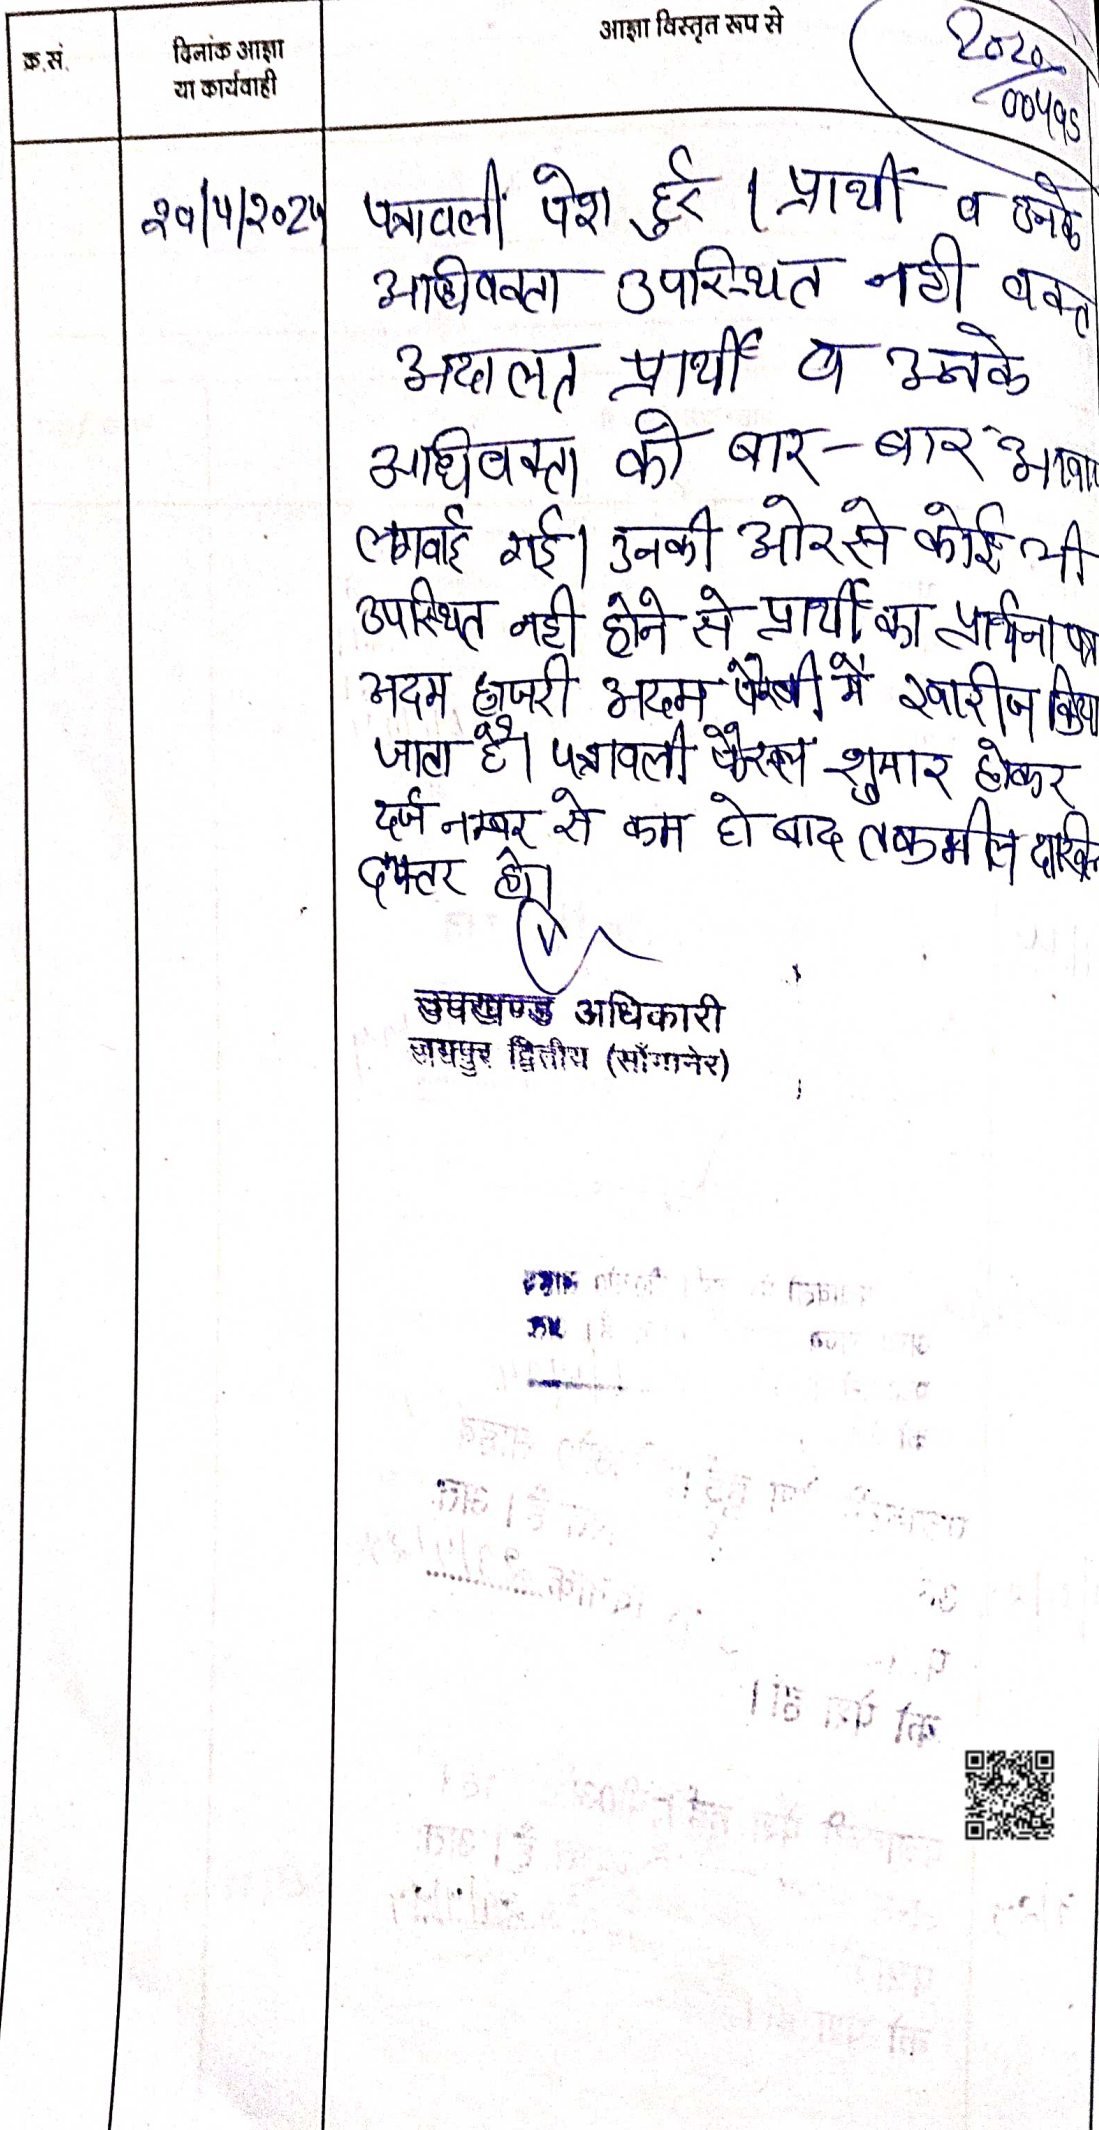 क्र.सं.
दिनांक आज्ञा
या कार्यवाही
आज्ञा विस्तृत रूप से
2020
पत्रावली पेश हुई । प्रार्थी व उनके
अधिवक्ता उपस्थित नही वक्त
अदालत प्रार्थी व उनके
अधिवक्ता को बार-बार
लगवाई गई। उनकी ओर से कोई भी
उपस्थित नही होने से प्रार्थी का प्रार्थना पत्र
अदम हाजरी अदम पैरवी मे खारीज किया
जाता है। पत्रावली फैसल शुमार होकर
दर्ज नम्बर से कम हो बाद तकमील दाखिल
दफ्तर हो।
उपखण्ड अधिकारी
जयपुर द्वितीय (साँगानेर)